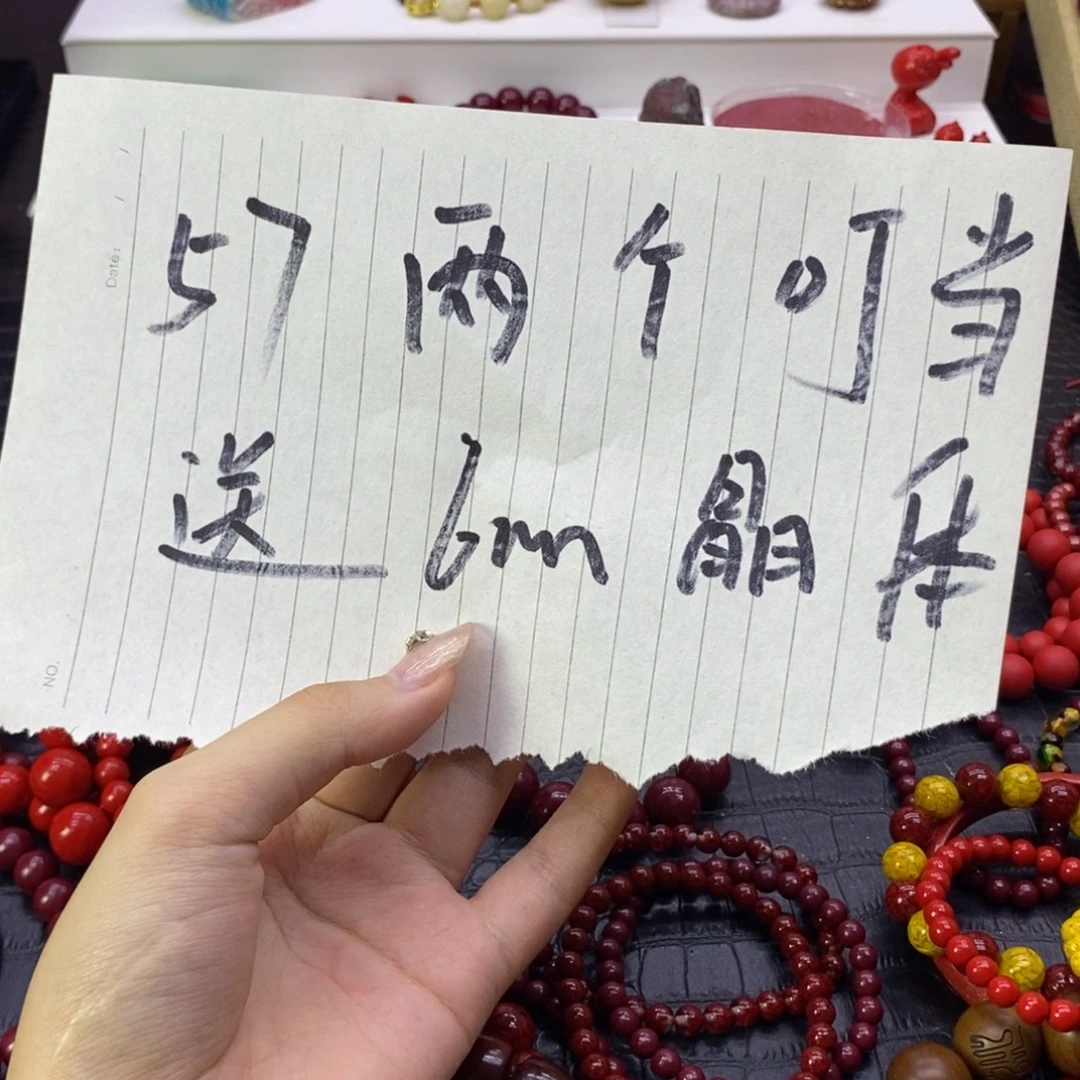 57 两个叮当
送 6mm 晶体
Date: / /
NO.